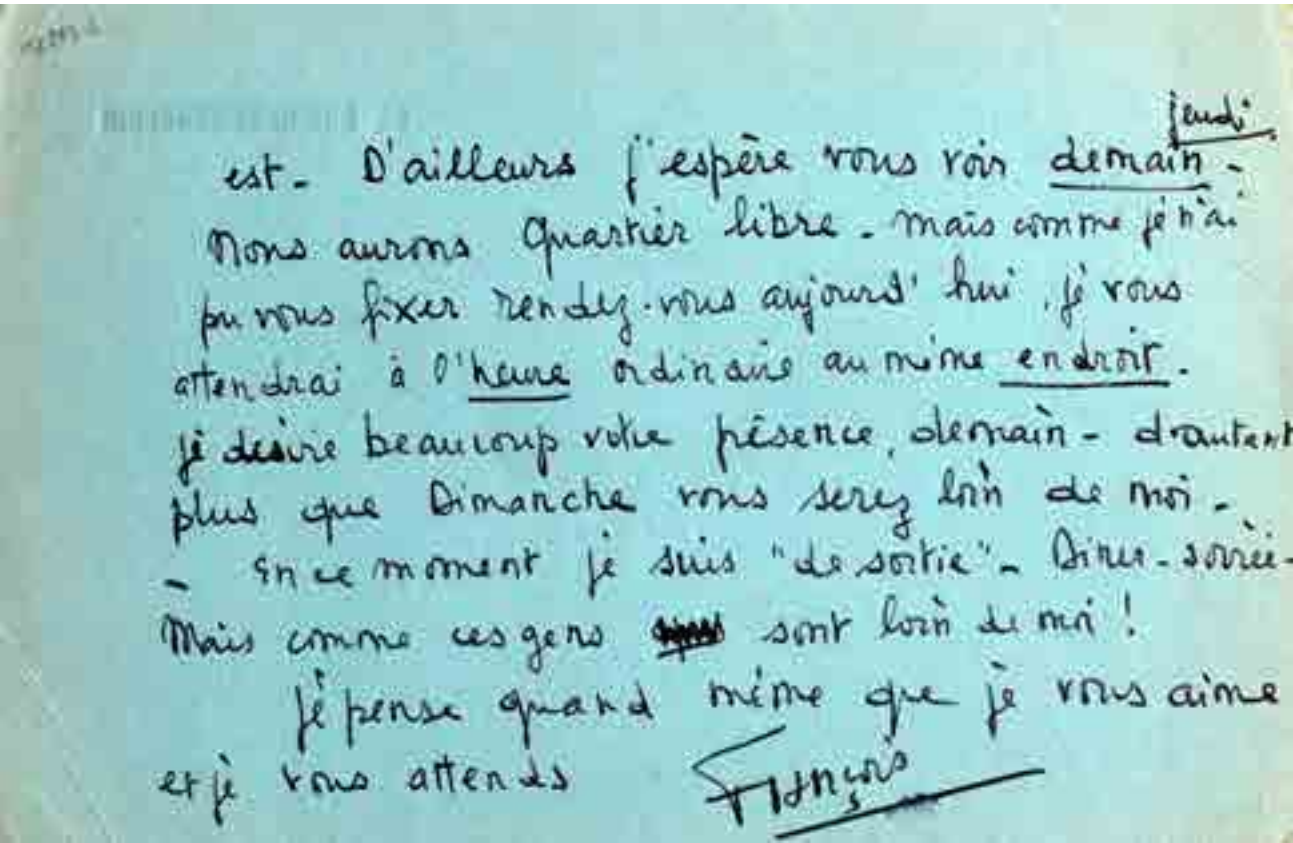 jeudi
est - D'ailleurs j'espère vous voir demain -
Nous aurons Quartier libre - mais comme je n'ai
pu vous fixer rendez-vous aujourd'hui, je vous
attendrai à l'heure ordinaire au même endroit.
je désire beaucoup votre présence, demain - d'autant
plus que Dimanche vous serez loin de moi -
- En ce moment je suis "de sortie" - Dîner - soirée -
Mais comme ces gens sont loin de moi !
Je pense quand même que je vous aime
et je vous attends
François